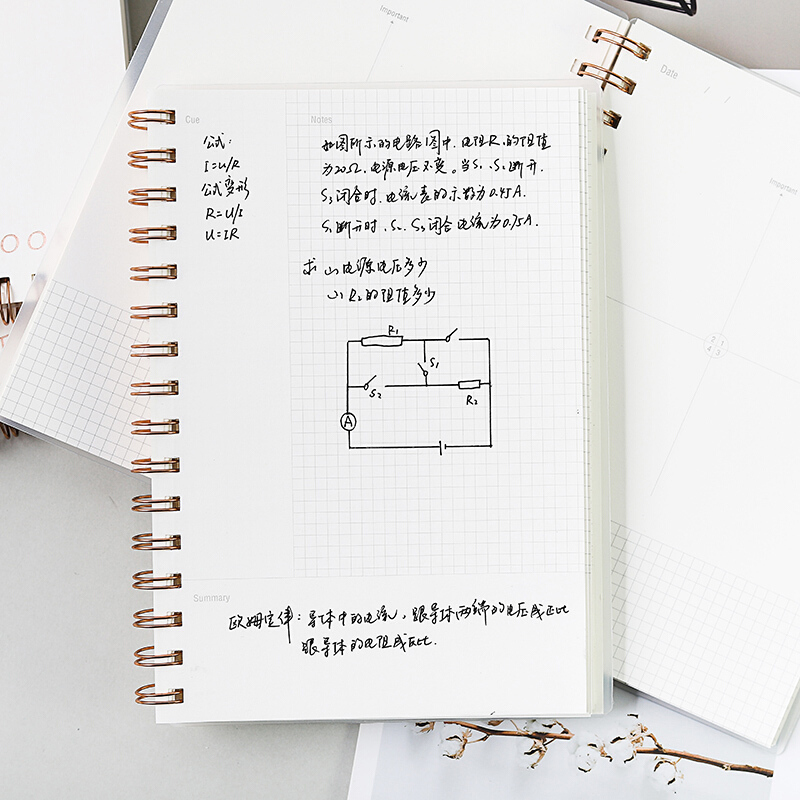 Important
Date / /
Important
Cue
Notes
公式：
I=U/R
公式变形
R=U/I
U=IR
如图所示的电路图中，电阻R₁的阻值
为20Ω，电源电压不变。当S₁、S₂断开，
S₃闭合时，电流表的示数为0.45A.
S₁断开时，S₂、S₃闭合电流为0.75A.
求 (1)电源电压多少
(2) R₂的阻值多少
R₁
S₁
S₂
R₂
A
2 1
4 3
Summary
欧姆定律：导体中的电流，跟导体两端的电压成正比
跟导体的电阻成反比.